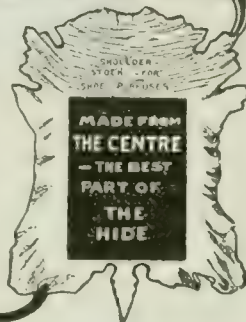 SHOULDER
STOCK FOR
SHOE PURPOSES
MADE FROM
THE CENTRE
— THE BEST
PART OF
THE
HIDE